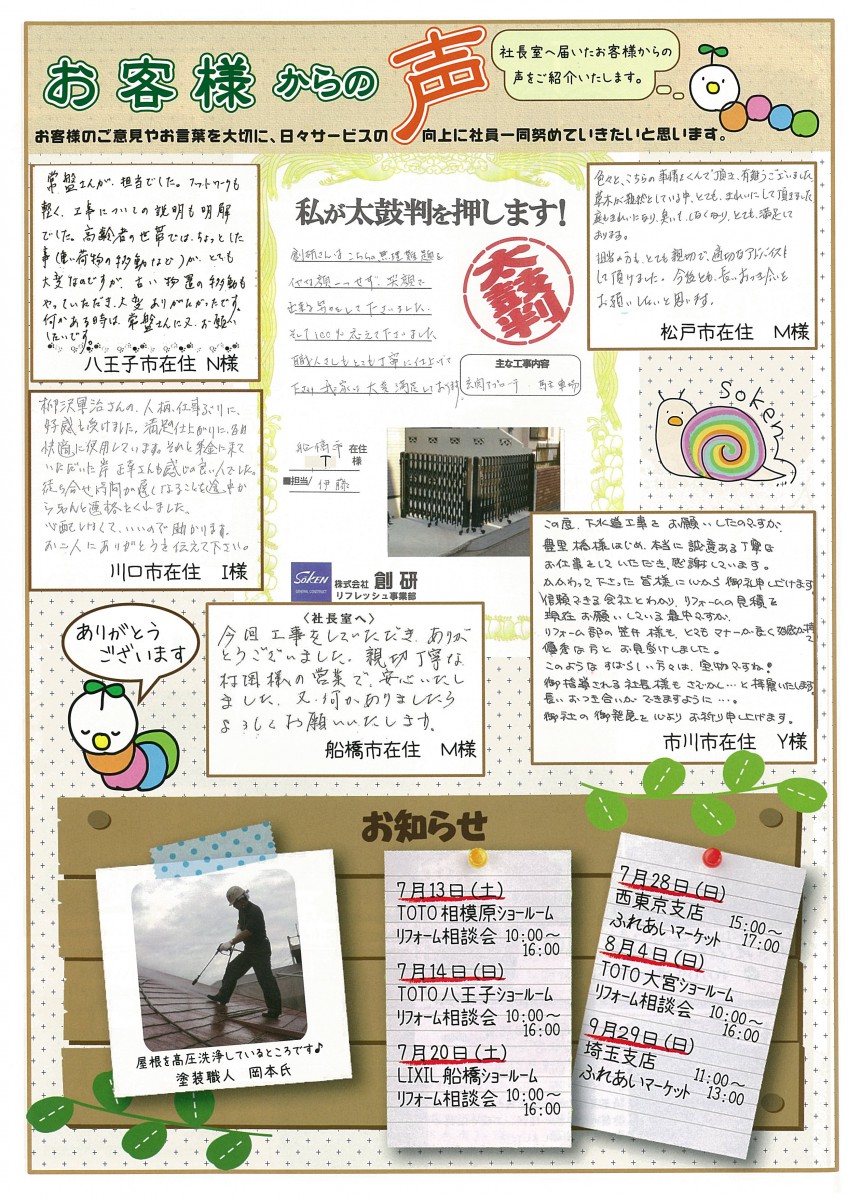 お客様からの声
社長室へ届いたお客様からの
声をご紹介いたします。
お客様のご意見やお言葉を大切に、日々サービスの向上に社員一同努めていきたいと思います。
常盤さんが、担当でした。フットワークも
軽く、工事についての説明も明解
でした。高齢者の世帯では、ちょっとした
事(重い荷物の移動など)が、とても
大変なのですが、古い物置の移動も
やっていただき、大変ありがたかったです。
何かある時は、常盤さんに又、お願い
したいです。
八王子市在住 N様
私が太鼓判を押します!
創研さんはこちらの無理難題を
イヤな顔一つせず、笑顔で
出来る事をして下さいました。
そして100%応えて下さいました。
職人さんもとても丁寧に仕上げて
下さり我家は大変満足しております。
太鼓判
主な工事内容
玄関アプローチ・
船橋市 在住
T 様
■担当/ 伊藤
SOKEN
株式会社 創研
リフレッシュ事業部
色々と、こちらの事情をくんで頂き、有難うございました
草木が雑然としている中、とても、きれいにして頂きました
庭もきれいになり、臭いもしなくなり、とても、満足して
おります。
担当の方も、とても親切で、適切なアドバイスを
して頂けました。今後とも、長いおつき合いを
お願いしたいと思います。
松戸市在住 M様
soken
柳沢軍治さんの、人柄、仕事ぶりに、
好感を受けました。満足な仕上がりに、毎日
快適に使用しています。それと集金に来て
いただいた岸 正幸さんも感じの良い人でした。
待ち合せ時間が遅くなることを途中から
ちゃんと連絡をくれました。
心配しなくて、いいので助かります。
お二人にありがとうを伝えて下さい。
川口市在住 I様
この度、下水道工事をお願いしたのですが、
豊里橋様はじめ、本当に誠意ある丁寧な
お仕事をしていただき、感謝しています。
かかわって下さった皆様に心から御礼申し上げます
信頼できる会社とわかり、リフォームの見積を
現在お願いしている最中ですが、
リフォーム部の笠井様も、とてもマナーが良く効感が持て
優秀な方とお見受けしました。
このようなすばらしい方々は、宝物ですね!
御指導される社長様もさぞかし…と拝察いたします
長いおつき合いができますように…。
御社の御発展を心よりお祈り申し上げます。
市川市在住 Y様
ありがとう
ございます
〈社長室へ〉
今回工事をしていただき、ありが
とうございました。親切丁寧な
村岡様の営業で、安心いたし
ました。又、何かありましたら
よろしくお願いいたします。
船橋市在住 M様
お知らせ
屋根を高圧洗浄しているところです♪
塗装職人 岡本氏
7月13日(土)
TOTO相模原ショールーム
リフォーム相談会 10:00～
16:00
7月14日(日)
TOTO八王子ショールーム
リフォーム相談会 10:00～
16:00
7月20日(土)
LIXIL船橋ショールーム
リフォーム相談会 10:00～
16:00
7月28日(日)
西東京支店 15:00～
ふれあいマーケット 17:00
8月4日(日)
TOTO大宮ショールーム
リフォーム相談会 10:00～
16:00
9月29日(日)
埼玉支店 11:00～
ふれあいマーケット 13:00